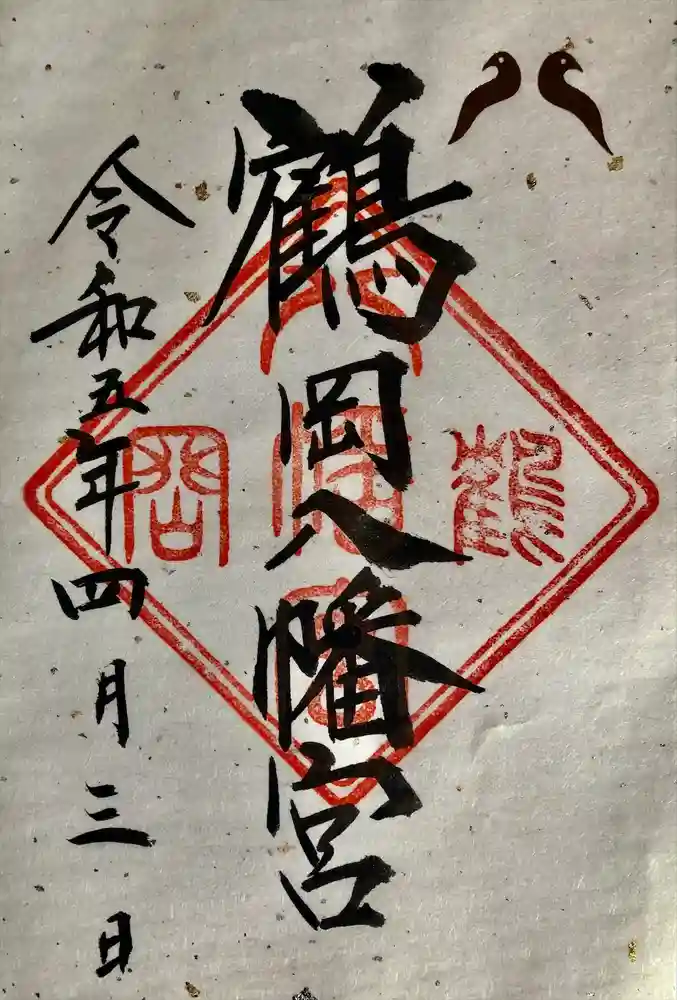 鶴岡八幡宮
鶴
八
幡
宮
岡
令和五年四月三日